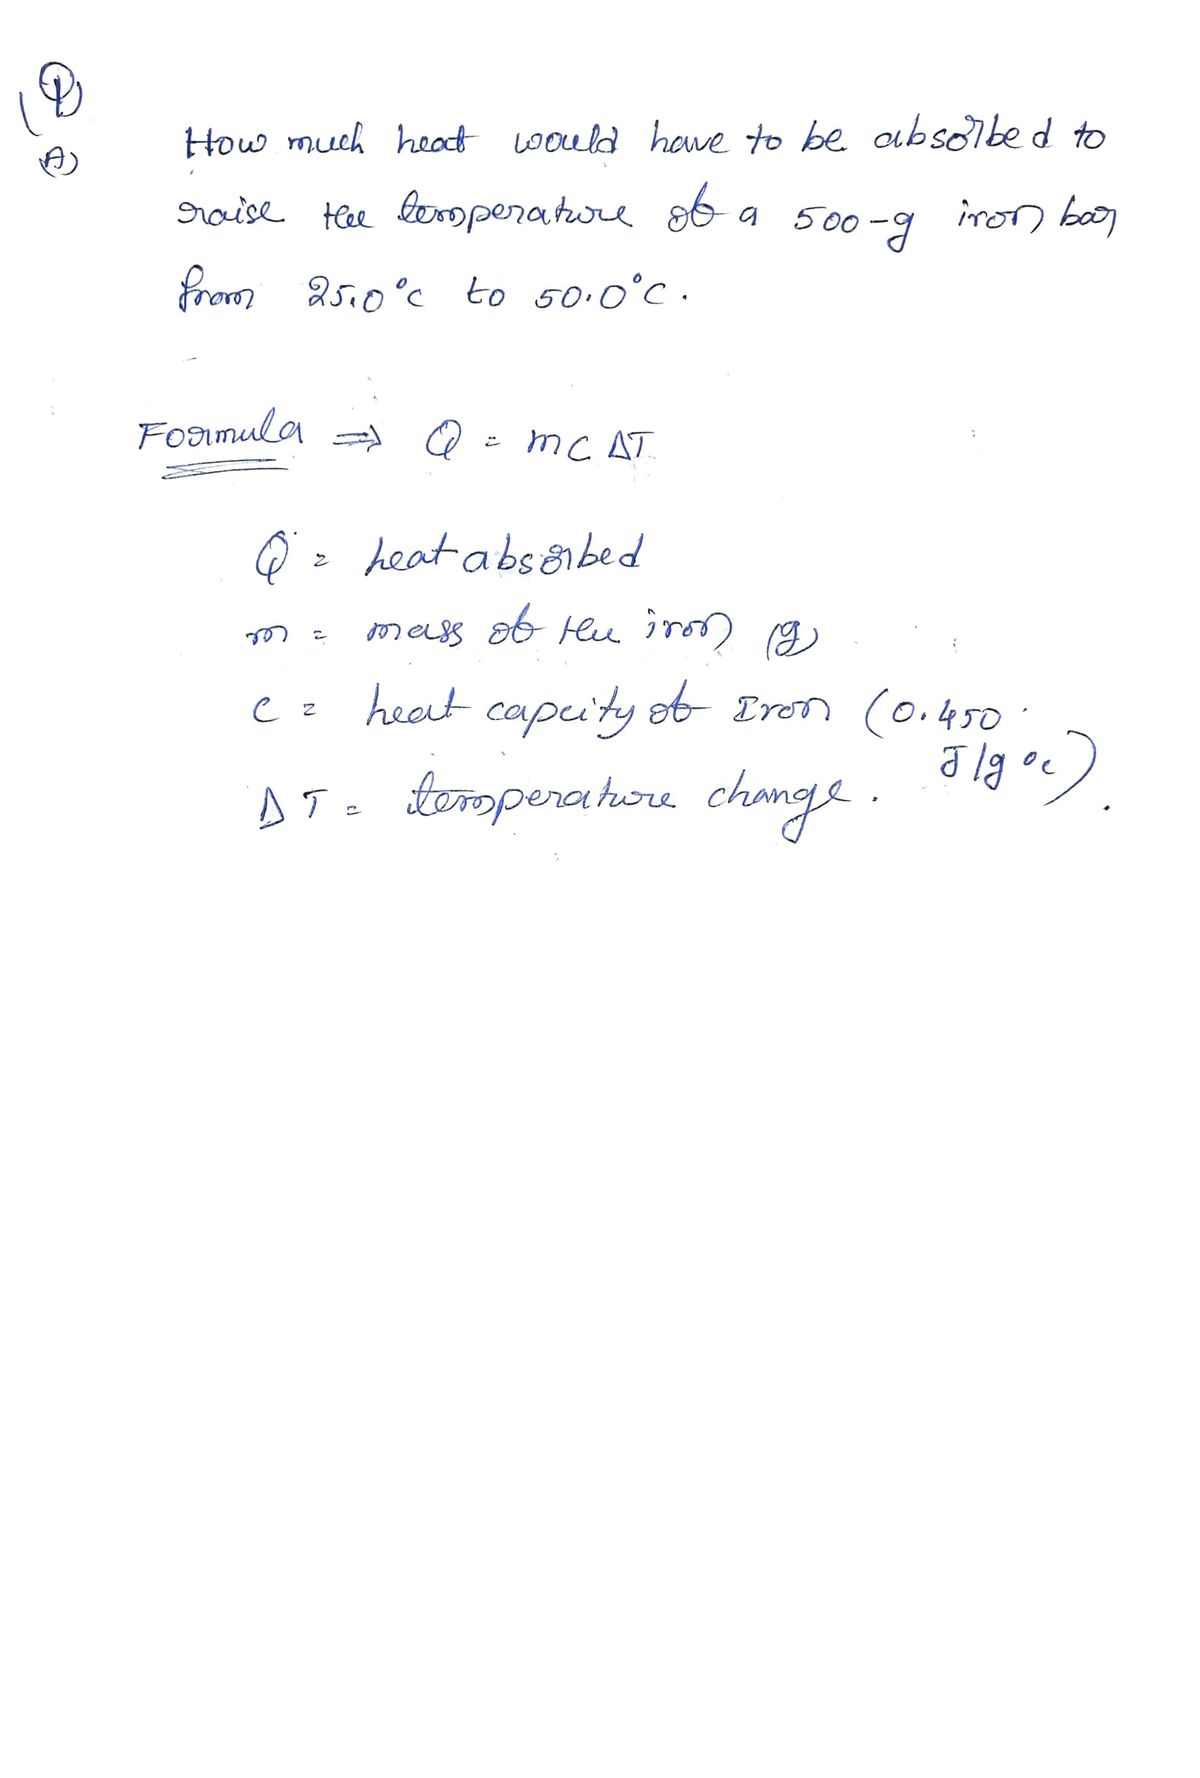 Q)
A)
How much heat would have to be absorbed to
raise the temperature of a 500-g iron bar
from 25.0°C to 50.0°C.
Formula ⇒ Q = mc ΔT
Q = heat absorbed
m = mass of the iron (g)
c = heat capcity of Iron (0.450
J/g °c).
ΔT = temperature change.